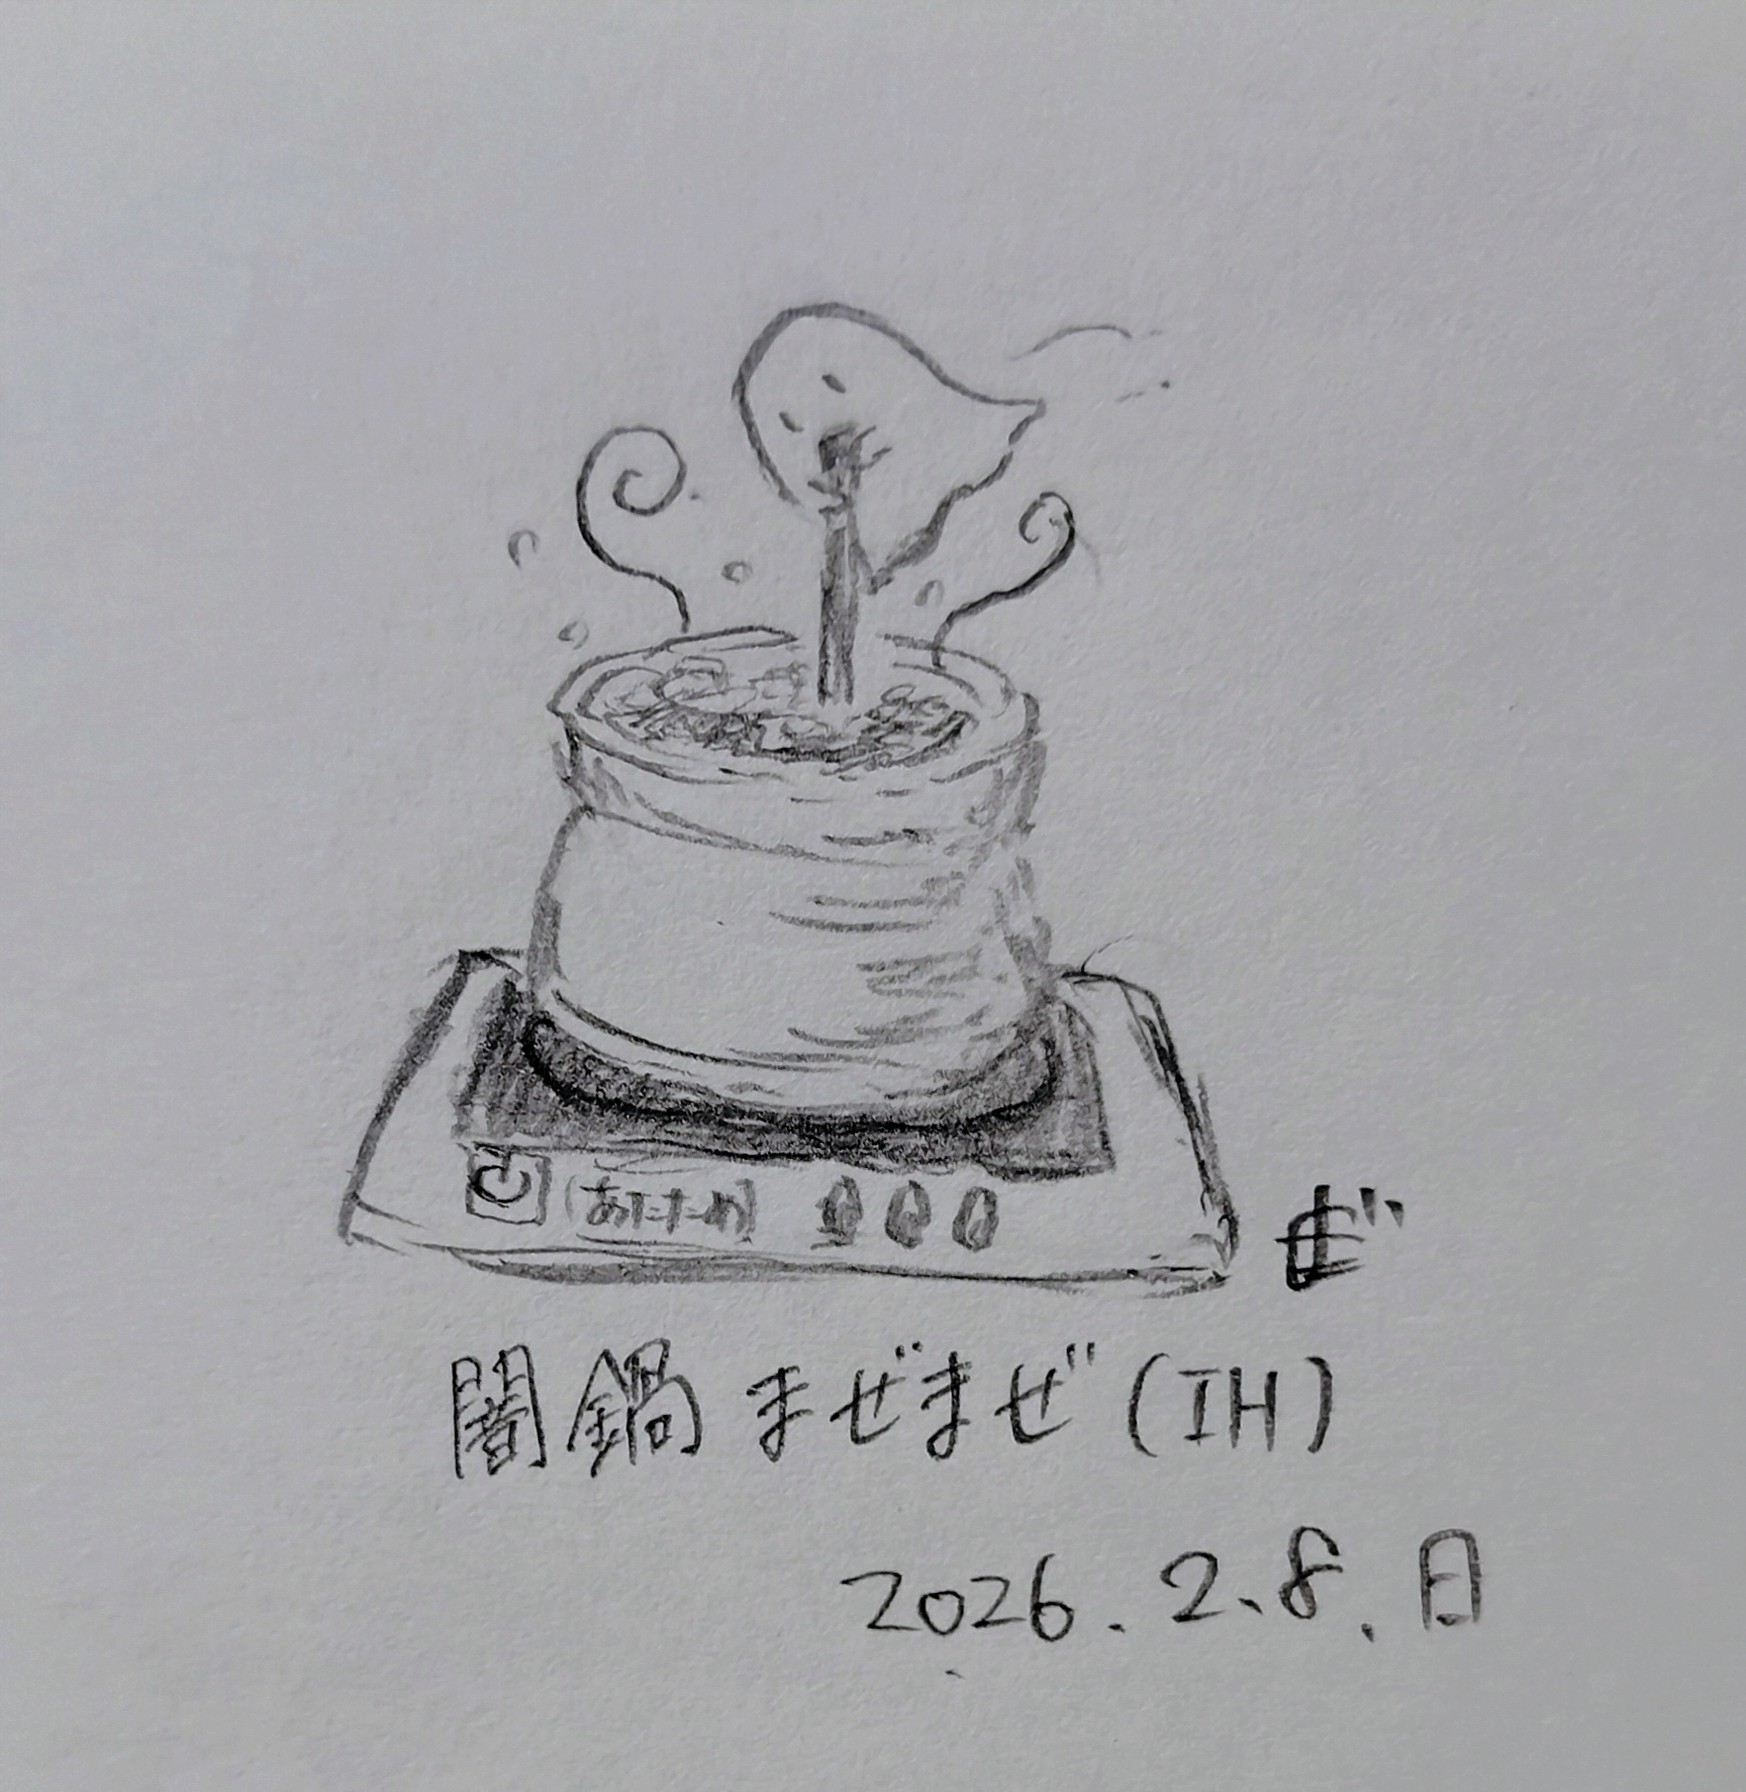 あたため
闇鍋まぜまぜ(IH)
2026.2.8.日